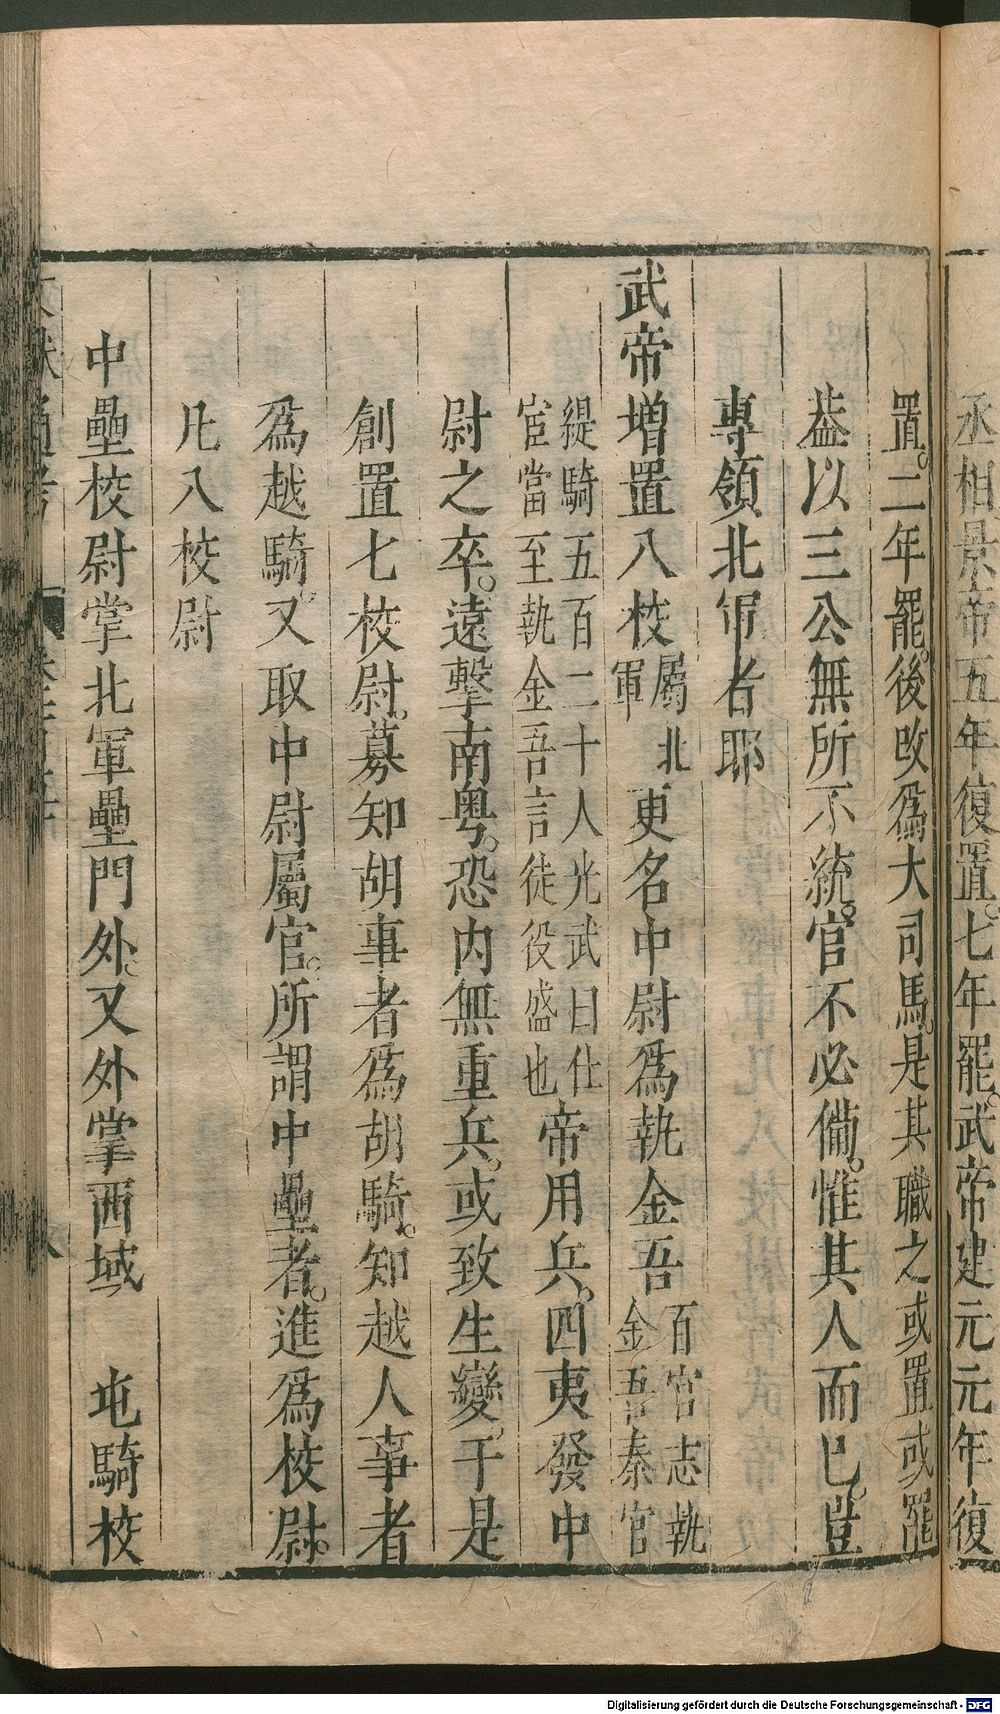 丞相景帝五年復置。七年罷。武帝建元元年復
置。二年罷。後改爲大司馬。是其職之或置或罷
葢以三公無所不統。官不必備。惟其人而已。豈
專領北軍者耶
武帝增置八校
屬北
軍
更名中尉爲執金吾
百官志執
金吾秦官
緹騎五百二十人光武曰仕
宦當至執金吾言徒役盛也
帝用兵。四夷發中
尉之卒。遠擊南粤。恐内無重兵。或致生變。于是
創置七校尉。募知胡事者爲胡騎。知越人事者
爲越騎。又取中尉屬官。所謂中壘者。進爲校尉。
凡八校尉
中壘校尉掌北軍壘門外。又外掌西域　屯騎校
文獻通考
Digitalisierung gefördert durch die Deutsche Forschungsgemeinschaft - DFG